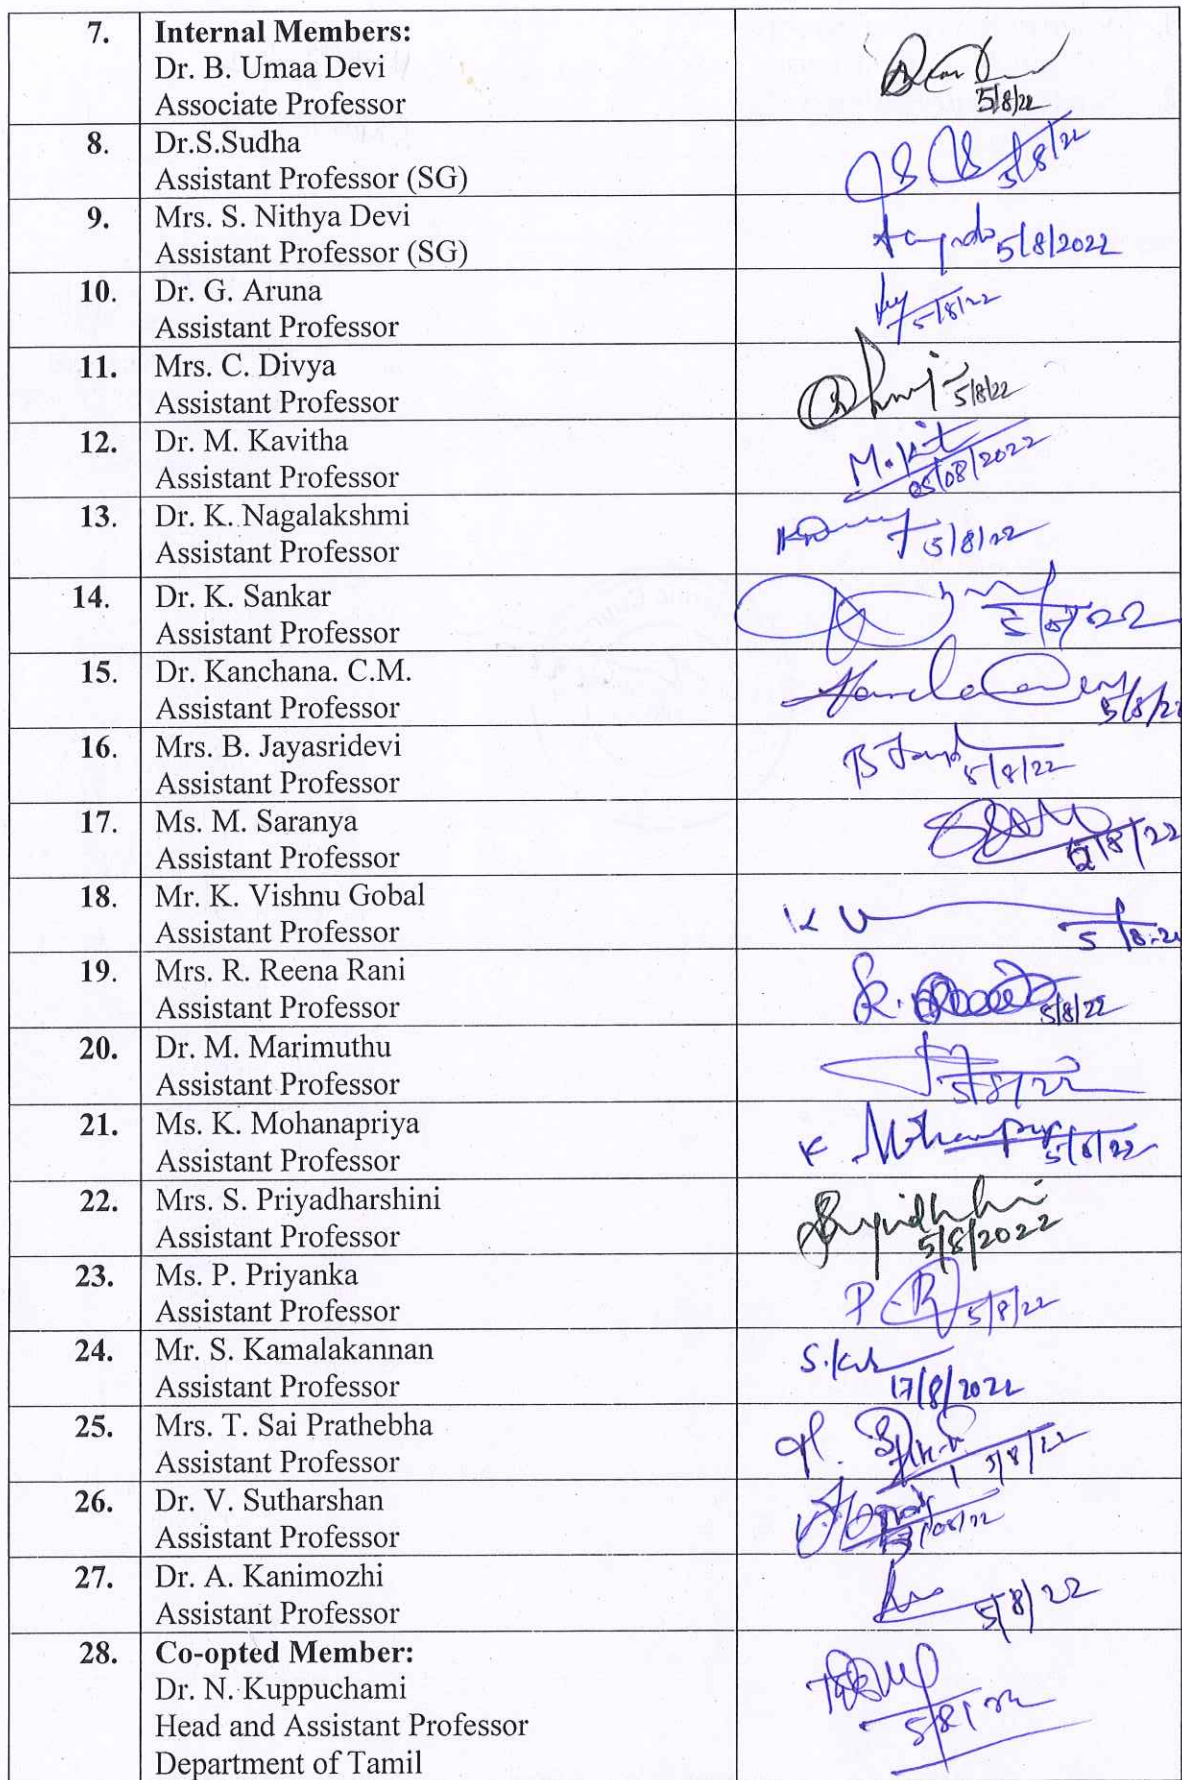 7. Internal Members:
Dr. B. Umaa Devi
Associate Professor
5/8/22
8. Dr.S.Sudha
Assistant Professor (SG)
5/8/22
9. Mrs. S. Nithya Devi
Assistant Professor (SG)
5/8/2022
10. Dr. G. Aruna
Assistant Professor
5/8/22
11. Mrs. C. Divya
Assistant Professor
5/8/22
12. Dr. M. Kavitha
Assistant Professor
05/08/2022
13. Dr. K. Nagalakshmi
Assistant Professor
5/8/22
14. Dr. K. Sankar
Assistant Professor
15. Dr. Kanchana. C.M.
Assistant Professor
5/8/22
16. Mrs. B. Jayasridevi
Assistant Professor
5/8/22
17. Ms. M. Saranya
Assistant Professor
18. Mr. K. Vishnu Gobal
Assistant Professor
19. Mrs. R. Reena Rani
Assistant Professor
5/8/22
20. Dr. M. Marimuthu
Assistant Professor
5/8/22
21. Ms. K. Mohanapriya
Assistant Professor
5/8/22
22. Mrs. S. Priyadharshini
Assistant Professor
5/8/2022
23. Ms. P. Priyanka
Assistant Professor
5/8/22
24. Mr. S. Kamalakannan
Assistant Professor
17/8/2022
25. Mrs. T. Sai Prathebha
Assistant Professor
5/8/22
26. Dr. V. Sutharshan
Assistant Professor
27. Dr. A. Kanimozhi
Assistant Professor
5/8/22
28. Co-opted Member:
Dr. N. Kuppuchami
Head and Assistant Professor
Department of Tamil
5/8/22